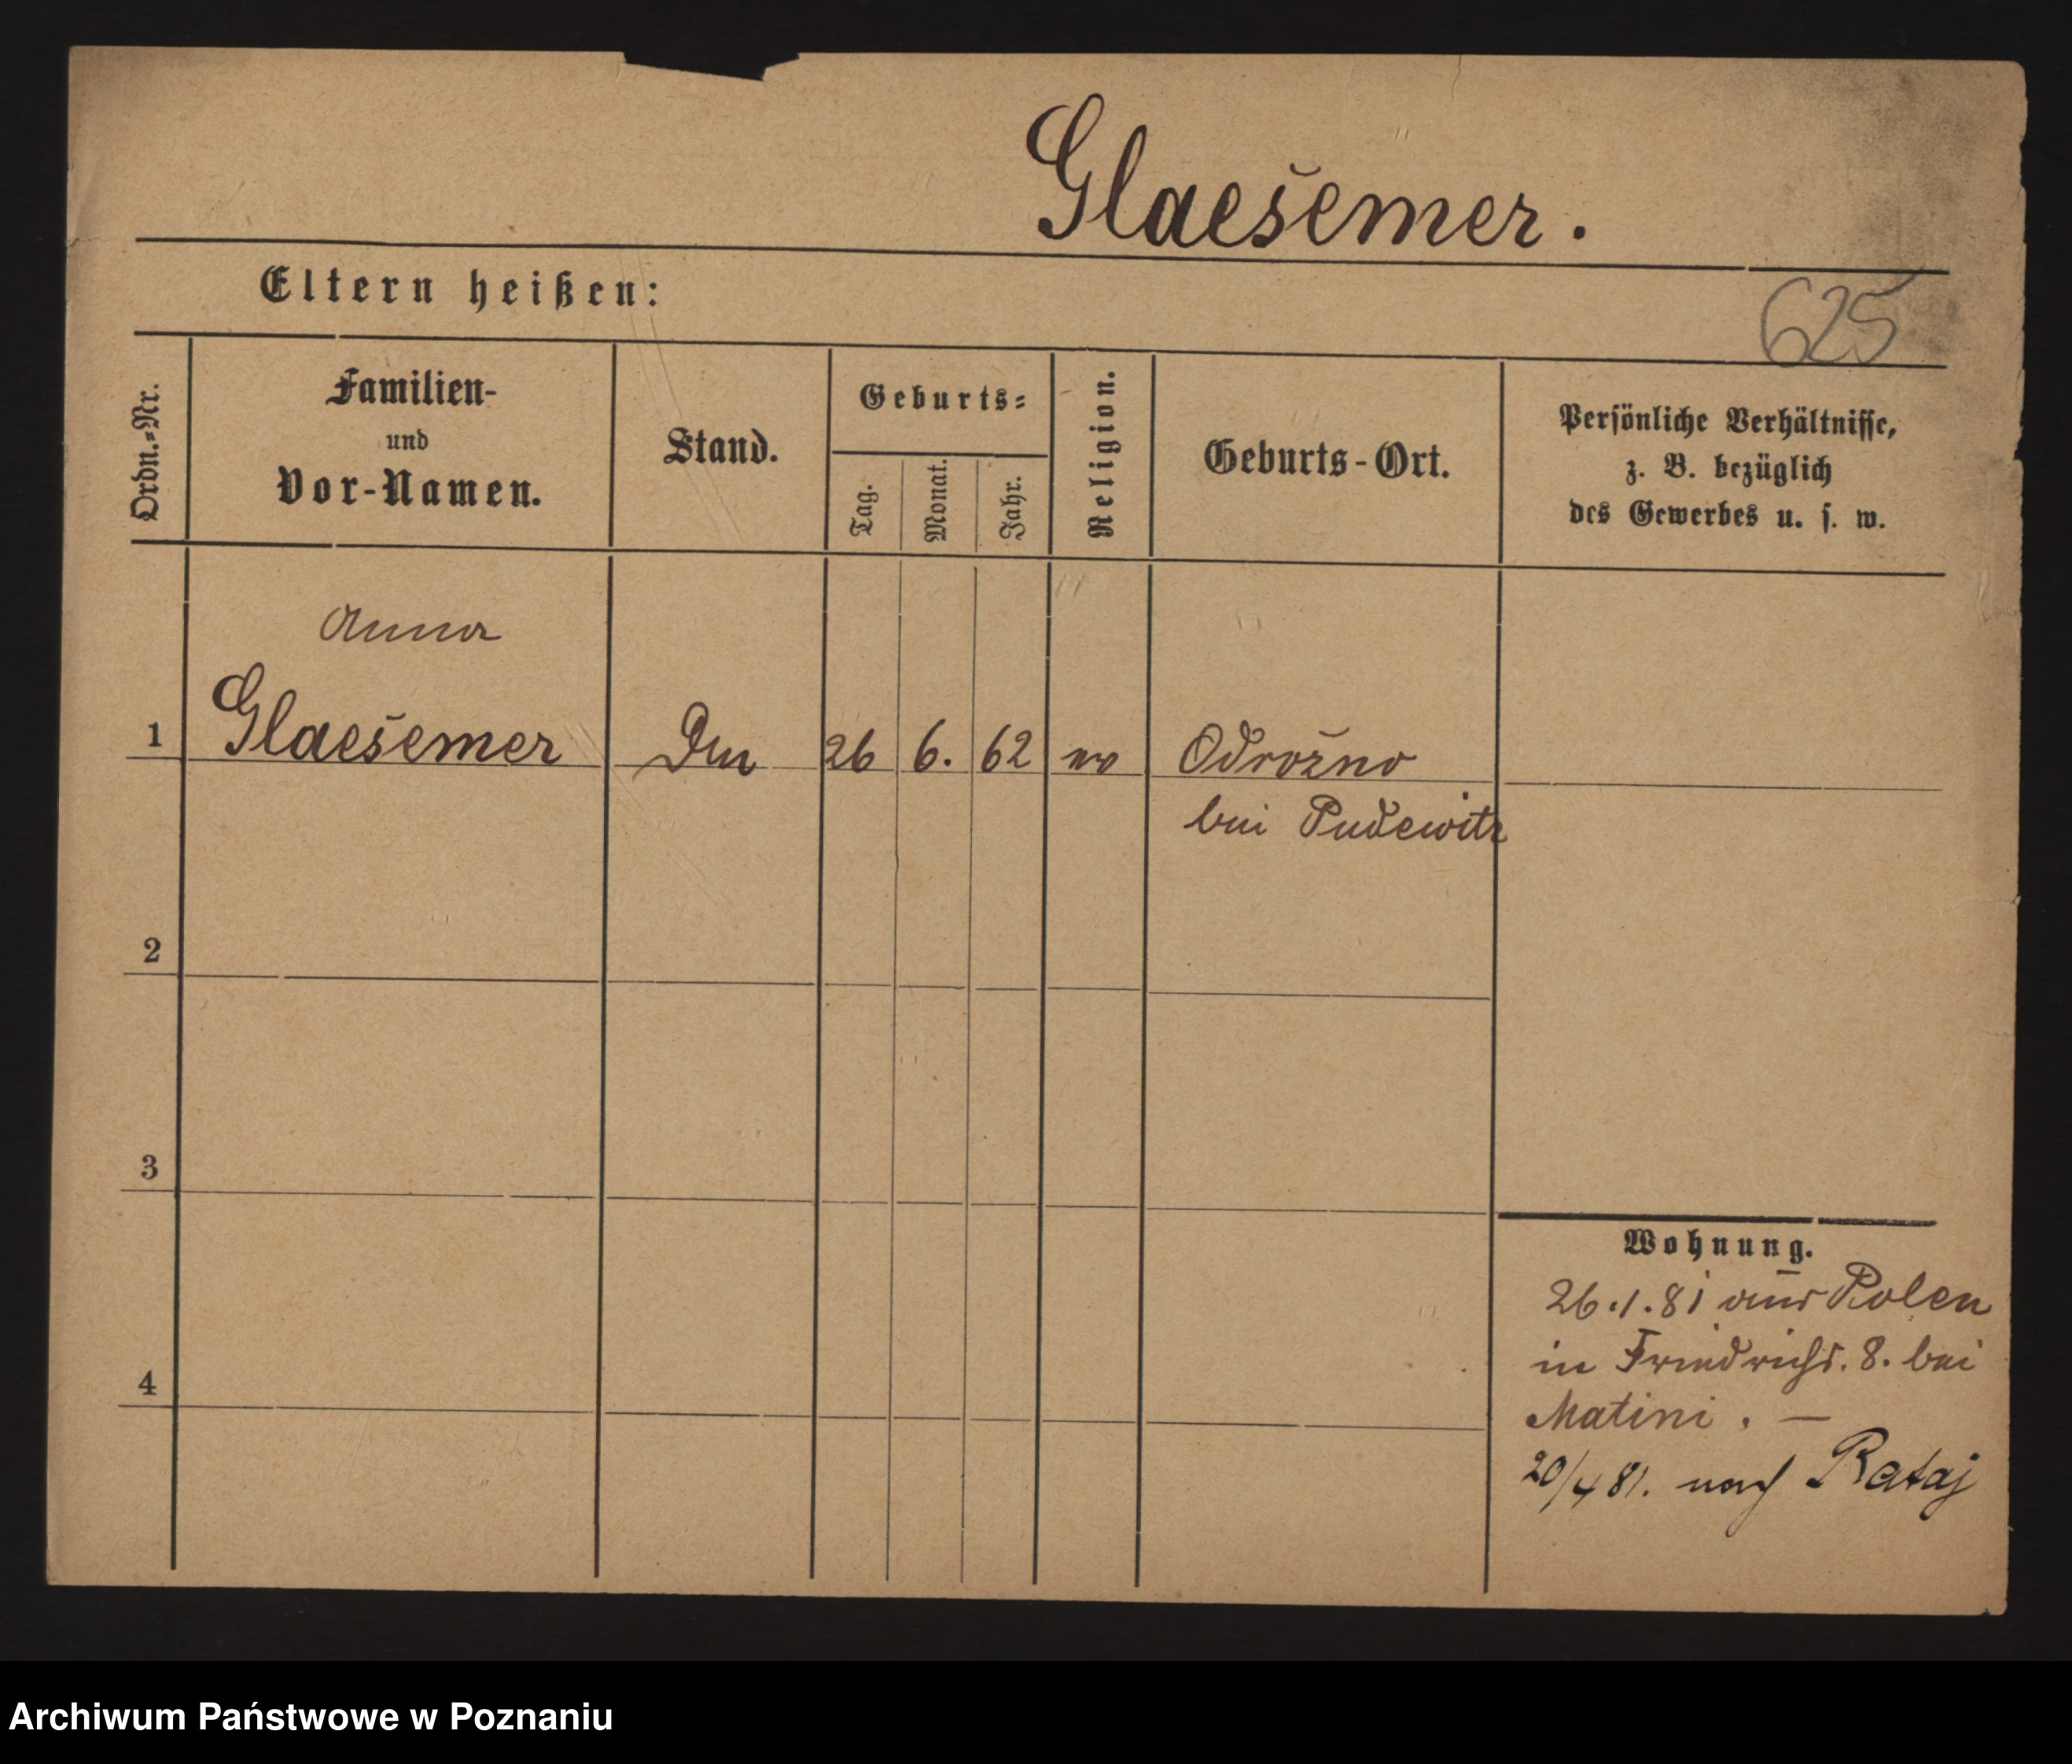 Glaesemer.
Eltern heißen:
625
Ordn.=Nr.
Familien-
und
Vor-Namen.
Stand.
Geburts=
Tag.
Monat.
Jahr.
Religion.
Geburts-Ort.
Persönliche Verhältnisse,
z. B. bezüglich
des Gewerbes u. s. w.
Anna
1 Glaesemer 26 6. 62 Odrožno
bei Pudewitz
2
3
4
Wohnung.
26.1.81 aus Polen
in Friedrichs. 8. bei
Matini. —
20/4 81. nach Rataj
Archiwum Państwowe w Poznaniu